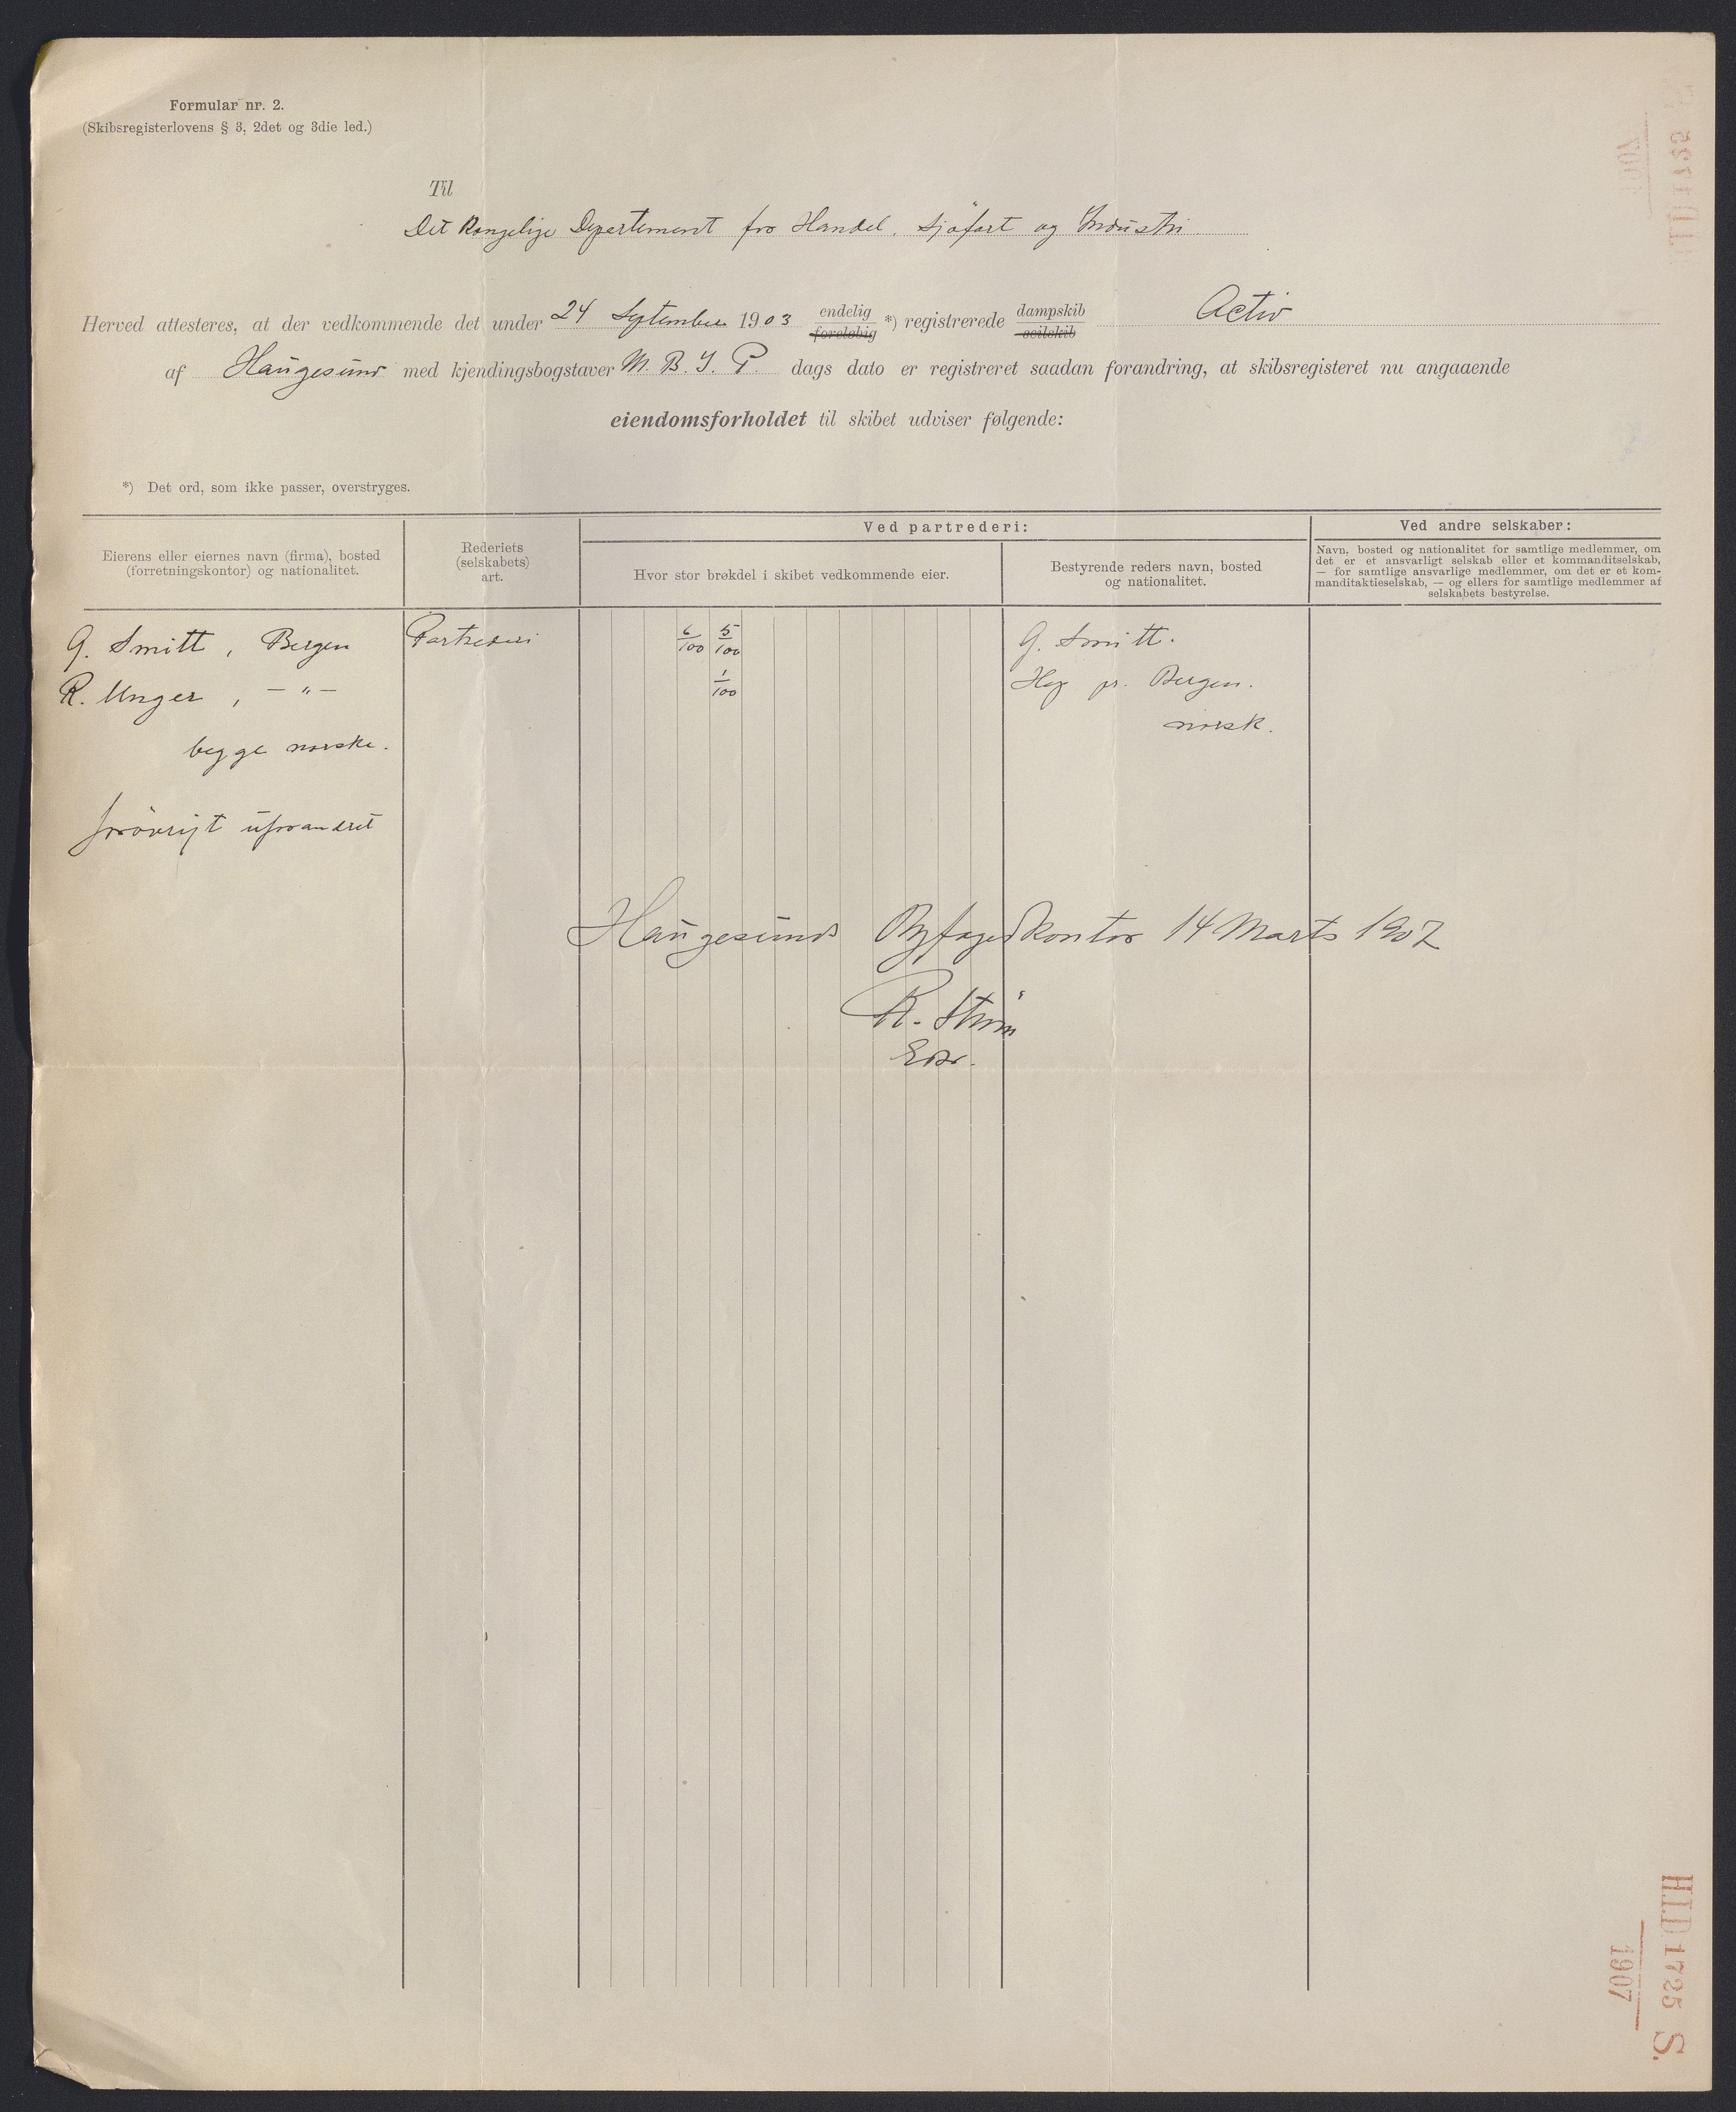 Formular nr. 2.
(Skibsregisterlovens § 3, 2det og 3die led.)
Til
Det Kongelige Departement for Handel, Sjøfart og Industri.
Herved attesteres, at der vedkommende det under 24 September 1903 endelig foreløbig *) registrerede dampskib seilskib Activ
af Haugesund med kjendingsbogstaver M. B. J. P. dags dato er registreret saadan forandring, at skibsregisteret nu angaaende
eiendomsforholdet til skibet udviser følgende:
*) Det ord, som ikke passer, overstryges.
Eierens eller eiernes navn (firma), bosted
(forretningskontor) og nationalitet.
Rederiets
(selskabets)
art.
Ved partrederi:
Hvor stor brøkdel i skibet vedkommende eier.
Bestyrende reders navn, bosted
og nationalitet.
Ved andre selskaber:
Navn, bosted og nationalitet for samtlige medlemmer, om
det er et ansvarligt selskab eller et kommanditselskab,
— for samtlige ansvarlige medlemmer, om det er et kom-
manditaktieselskab, — og ellers for samtlige medlemmer af
selskabets bestyrelse.
G. Smitt, Bergen Partrederi 6/100 5/100 G. Smitt.
R. Unger, — " — 1/100 Hop pr. Bergen.
norsk.
begge norske.
forøvrigt uforandret
Haugesunds Byfogedkontor 14 Marts 1907
R. Strøm
H.I.D 1725 S.
1907